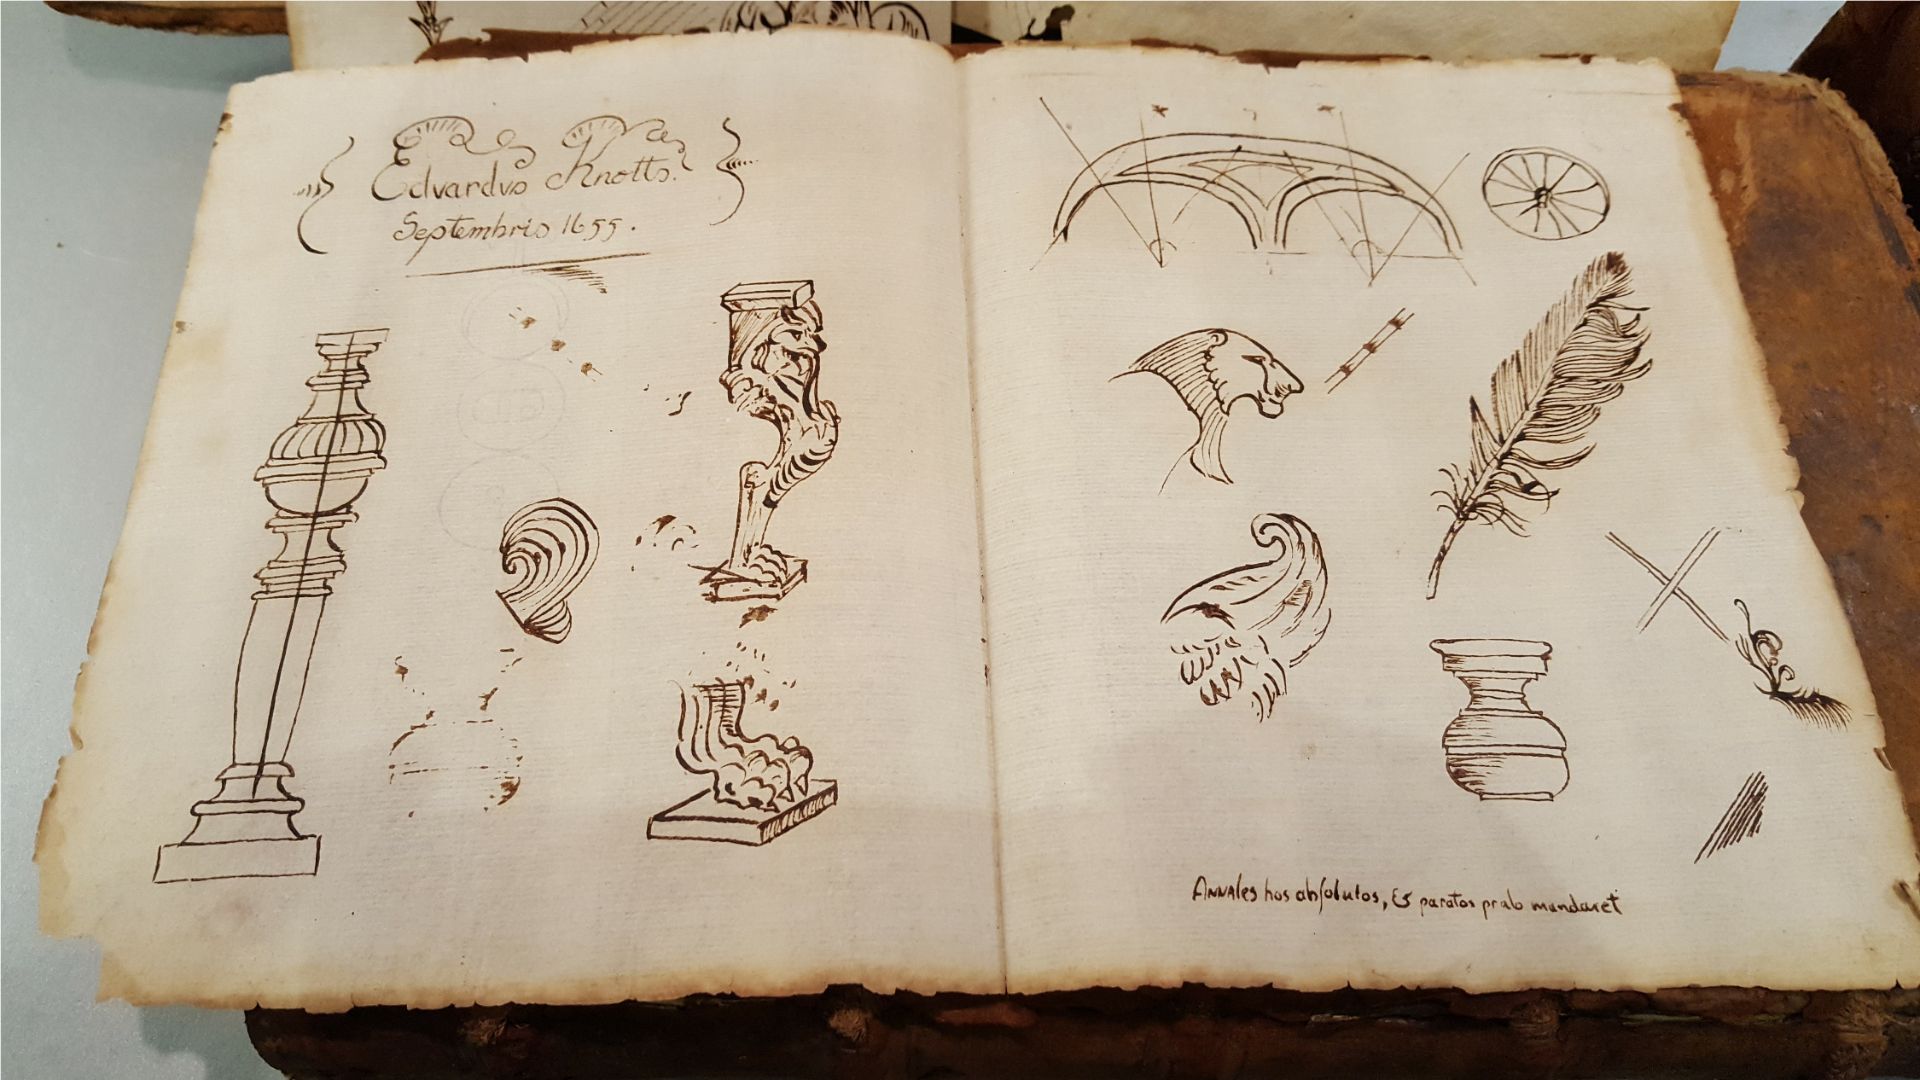 Edvardvs Knotts.
Septembris 1655.
ANNAles hos abſolutos, & paratos prælo mandaret